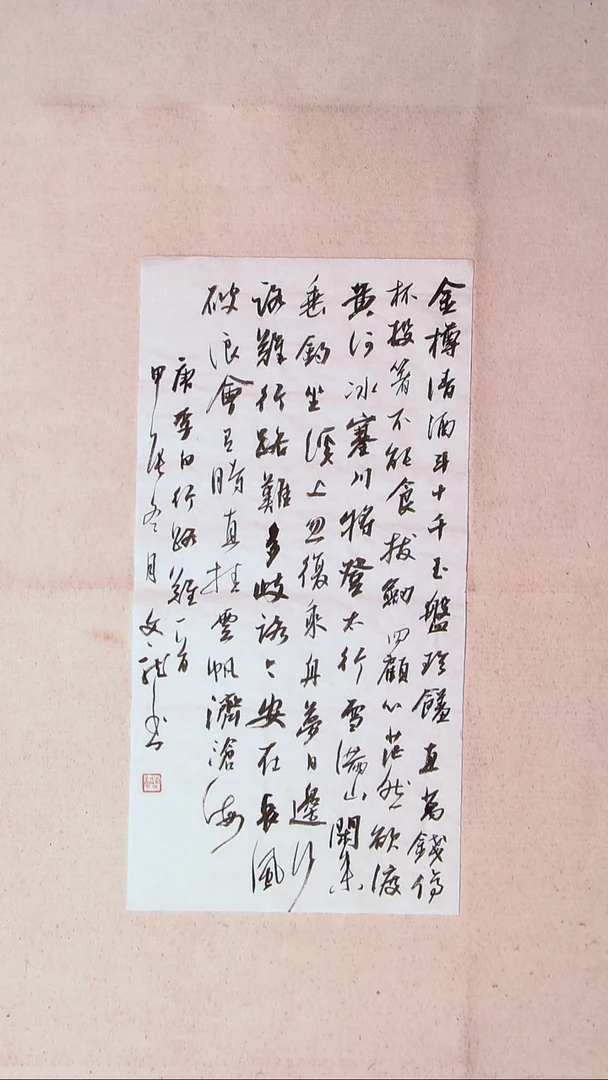 金樽清酒斗十千玉盤珍饈直萬錢停
杯投箸不能食拔劍四顧心茫然欲渡
黃河冰塞川將登太行雪滿山閑來
垂釣坐溪上忽復乘舟夢日邊行
路難行路難多歧路今安在長風
破浪會有時直挂雲帆濟滄海
唐李白行路難一首
甲辰冬月文龍書